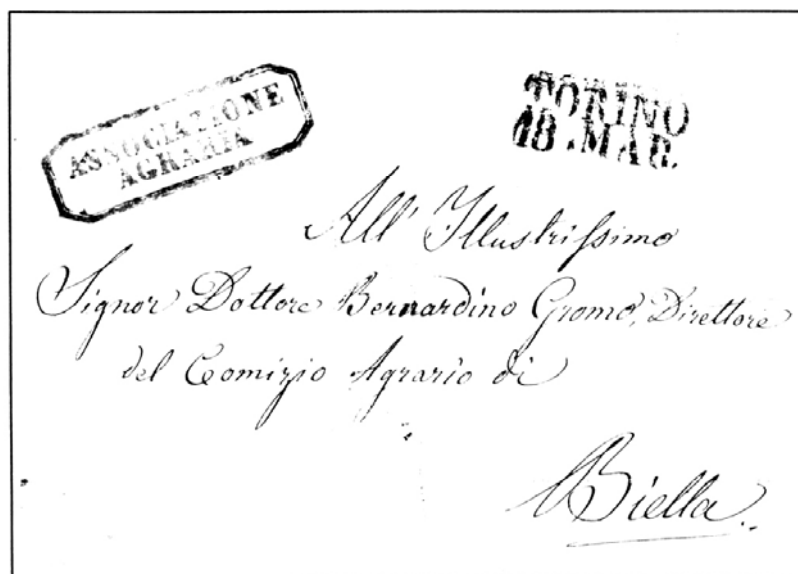 ASSOCIAZIONE
AGRARIA
TORINO
18 .MAR.
All' Illustrissimo
Signor Dottore Bernardino Gromo, Direttore
del Comizio Agrario di
Biella.